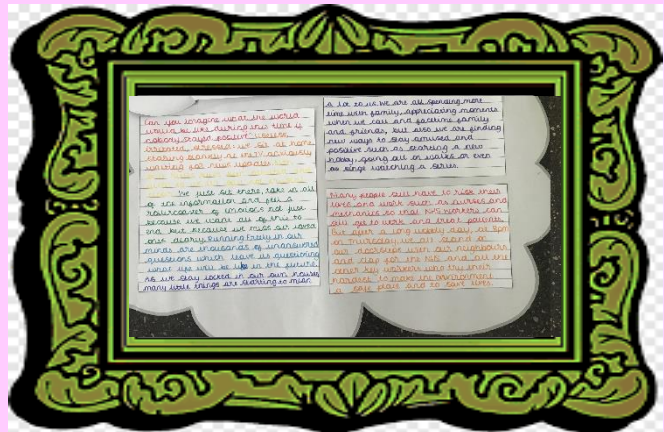 Can you imagine what the world
would be like during this time if
nobody stayed positive
stressed. We sit at home
waiting for new updates
We just sit there, take in all
of the information and feel a
rollercoaster of emotions not just
because we want all of this to
end but because we miss our loved
ones dearly. Running freely in our
minds are thousands of unanswered
questions which leave us questioning
what life will be like in the future.
As we stay locked in our own houses
many little things are starting to mean
a lot to us. We are all spending more
time with family, appreciating moments
when we call and facetime family
and friends, but also we are finding
new ways to stay amused and
positive such as starting a new
hobby, going out on walks or even
binge watching a series.
Many people still have to risk their
lives and work such as nurses and
mechanics so that NHS workers can
still get to work and treat patients.
But after a long weekly day, at 8pm
on Thursday we all stand on
our doorstep with our neighbours
and clap for the NHS and all the
other key workers who try their
hardest to make the environment
a safe place and to save lives.